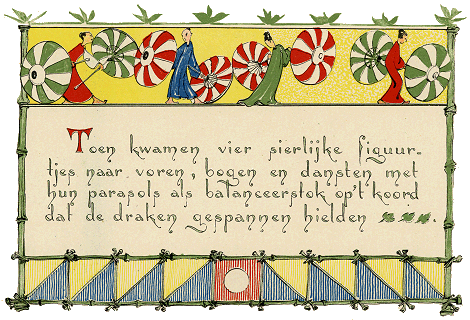 Toen kwamen vier sierlijke figuur-
tjes naar voren, bogen en dansten met
hun parasols als balanceerstok op't koord
dat de draken gespannen hielden